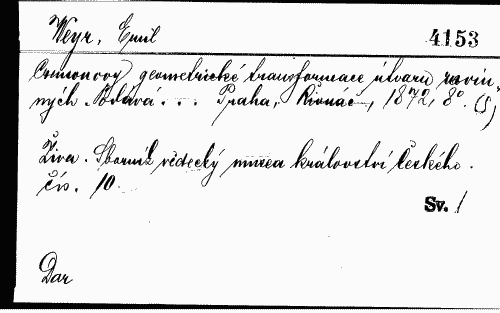 Weyr, Emil
4153
Cremonovy geometrické transformace útvarů rovin-
ných. Podává . . . Praha, Řivnáč, 1872, 8°. (S)
Živa. Sborník vědecký musea království Českého.
čís. 10.
Sv. 1
Dar